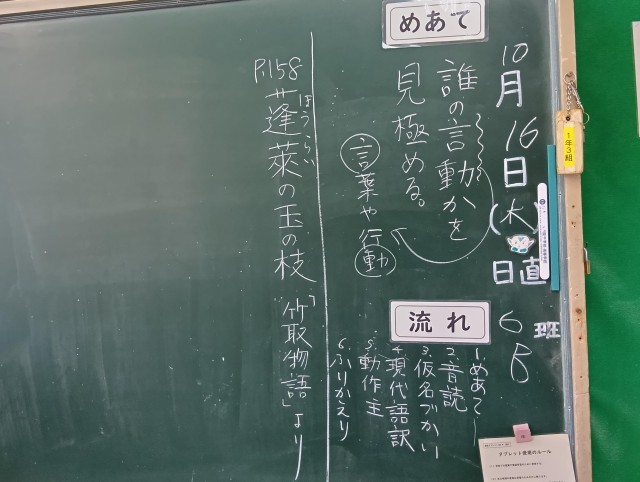 10月16日(木)
日直 6班 B
めあて
誰の言動かを
見極める。
言葉や行動
流れ
1.めあて
2.音読
3.仮名づかい
4.現代語訳
5.動作主
6.ふりかえり
P.158
ほうらい
蓬萊の玉の枝
「竹取物語」より
1年3組
タブレット使用のルール